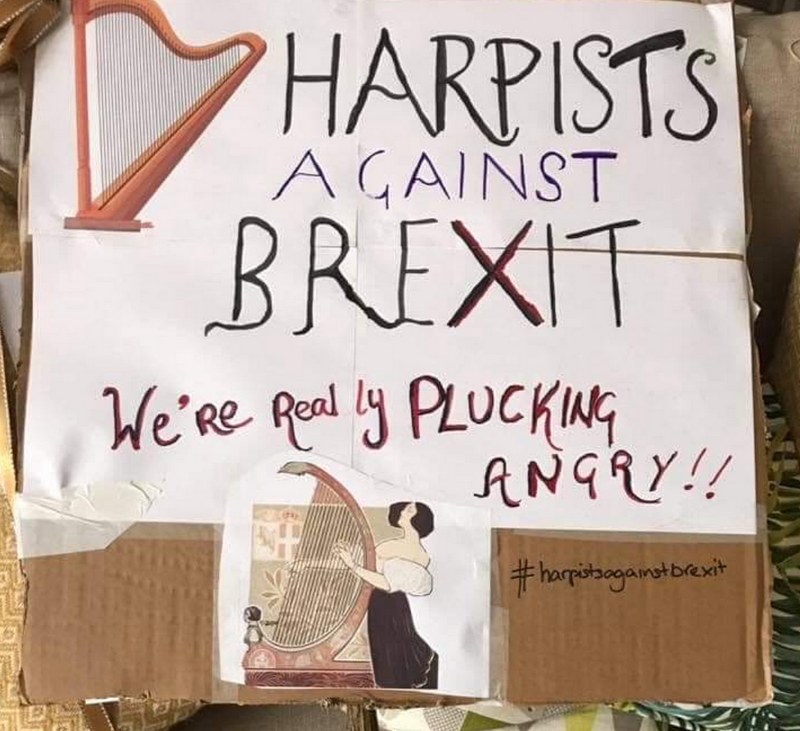 HARPISTS
AGAINST
BREXIT
We're Really PLUCKING
ANGRY!!
#harpistsagainstbrexit